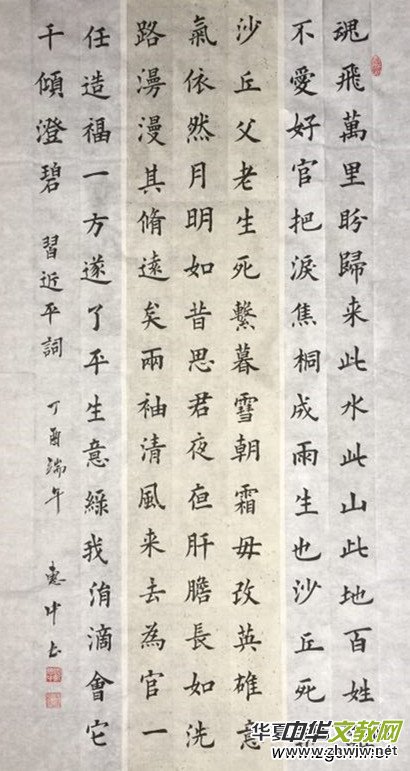 魂飛萬里盼歸来此水此山此地百姓
不愛好官把淚焦桐成雨生也沙丘死
沙丘父老生死繫暮雪朝霜毋改英雄意
氣依然月明如昔思君夜亱肝膽長如洗
路澷漫其脩遠矣兩袖清風来去為官一
任造福一方遂了平生意綠我涓滴會它
千傾澄碧 習近平詞 丁酉端午 惠中书
华夏中华文教网
www.zhwjw.net